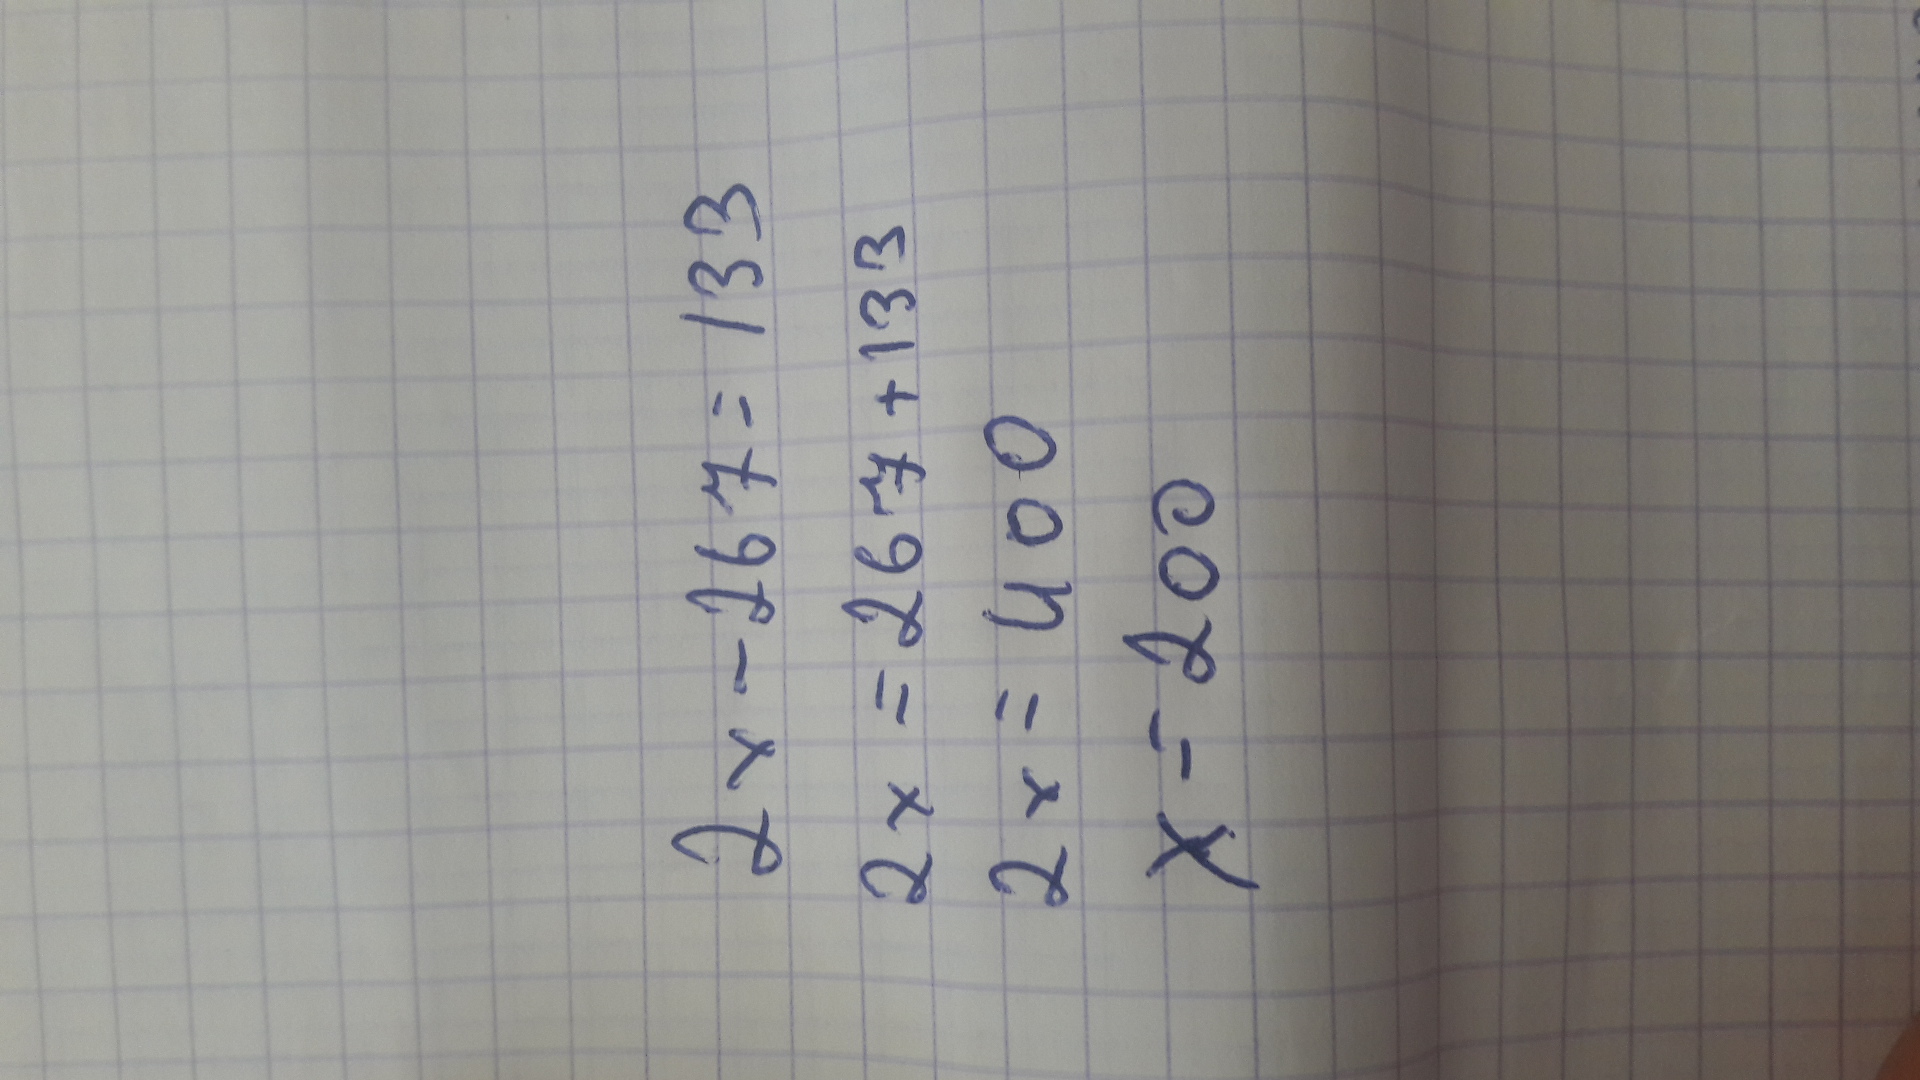 2x - 267 = 133
2x = 267 + 133
2x = 400
x = 200